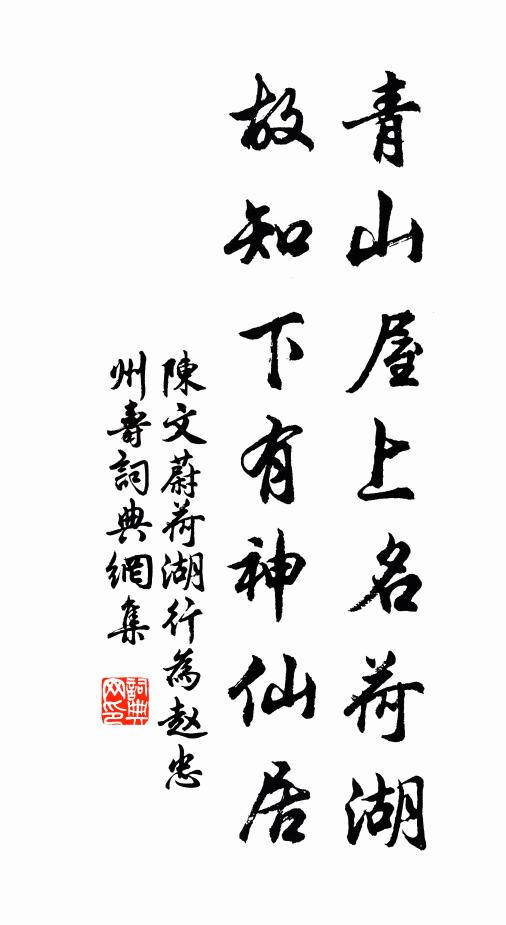 青山屋上名荷湖
故知下有神仙居
陳文蔚荷湖行為赵忠
州壽詞典網集
詞典
网印